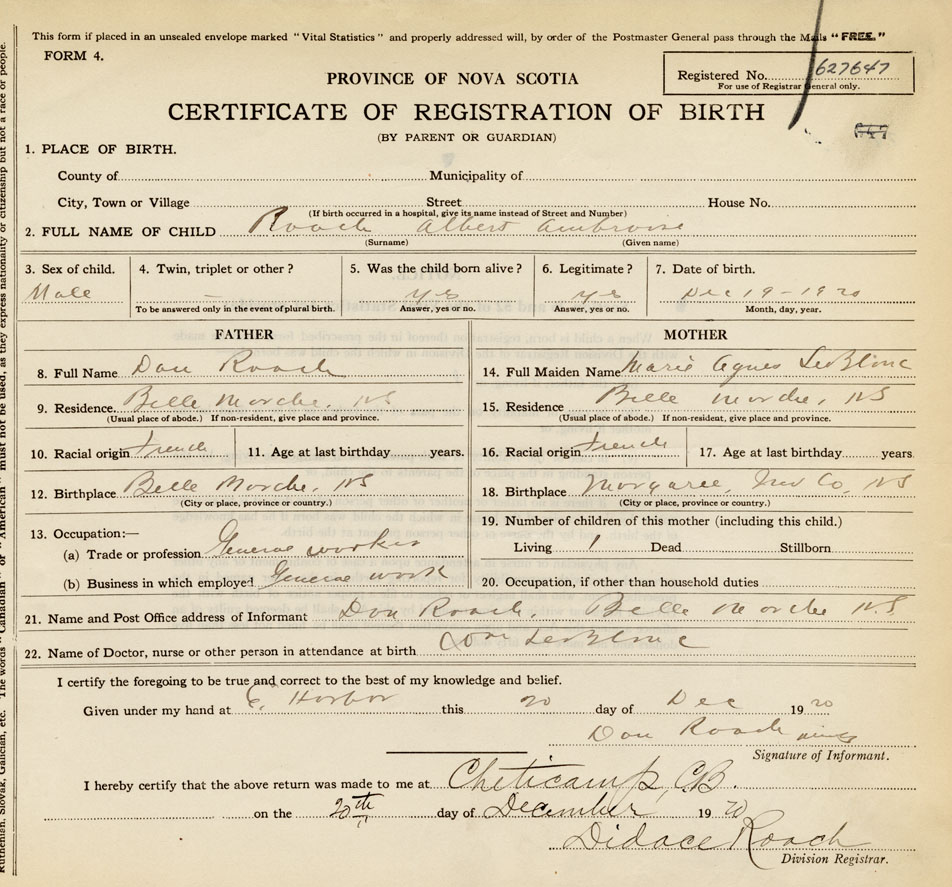 This form if placed in an unsealed envelope marked "Vital Statistics" and properly addressed will, by order of the Postmaster General pass through the Mails "FREE."
FORM 4.
PROVINCE OF NOVA SCOTIA
Registered No. 627647
For use of Registrar General only.
CERTIFICATE OF REGISTRATION OF BIRTH
(BY PARENT OR GUARDIAN)
647
1. PLACE OF BIRTH.
County of Municipality of
City, Town or Village Street House No.
(If birth occurred in a hospital, give its name instead of Street and Number)
2. FULL NAME OF CHILD Roach Albert Ambroise
(Surname) (Given name)
3. Sex of child. 4. Twin, triplet or other? 5. Was the child born alive? 6. Legitimate? 7. Date of birth.
Male – yes yes Dec 19-1920
To be answered only in the event of plural birth. Answer, yes or no. Answer, yes or no. Month, day, year.
FATHER MOTHER
8. Full Name Dan Roach 14. Full Maiden Name Marie Agnes LeBlanc
9. Residence Belle Marche, NS 15. Residence Belle Marche, NS
(Usual place of abode.) If non-resident, give place and province. (Usual place of abode.) If non-resident, give place and province.
10. Racial origin French 11. Age at last birthday years. 16. Racial origin French 17. Age at last birthday years
12. Birthplace Belle Marche, NS 18. Birthplace Margaree, Inv Co, NS
(City or place, province or country.) (City or place, province or country.)
13. Occupation:— 19. Number of children of this mother (including this child.)
(a) Trade or profession General worker Living 1 Dead Stillborn
(b) Business in which employed General work 20. Occupation, if other than household duties
21. Name and Post Office address of Informant Dan Roach, Belle Marche N.S.
22. Name of Doctor, nurse or other person in attendance at birth LeBlanc
I certify the foregoing to be true and correct to the best of my knowledge and belief.
Given under my hand at E. Harbor this 20 day of Dec 1920
Dan Roach
Signature of Informant.
I hereby certify that the above return was made to me at Cheticamp, C.B.
on the 20th day of December 1920
Didace Roach
Division Registrar.
Ruthenian, Slovak, Galician, etc. The words "Canadian" or "American" must not be used, as they express nationality or citizenship but not a race or people.